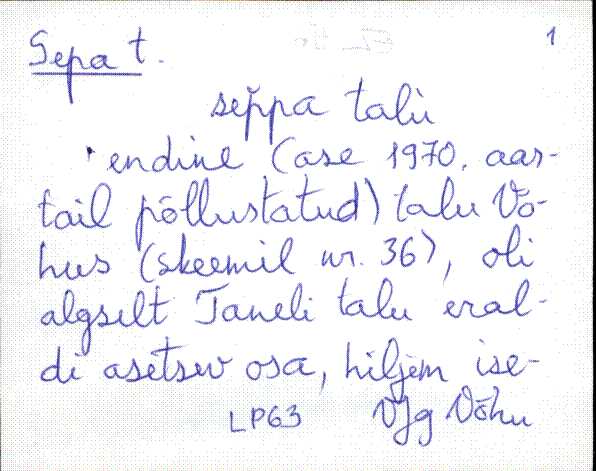 Sepa t. 1
seppa talu
endine (ase 1970. aas-
tail põllustatud) talu Võ-
hus (skeemil nr. 36), oli
algselt Taneli talu eral-
di asetsev osa, hiljem ise-
LP63 VJg Võhu